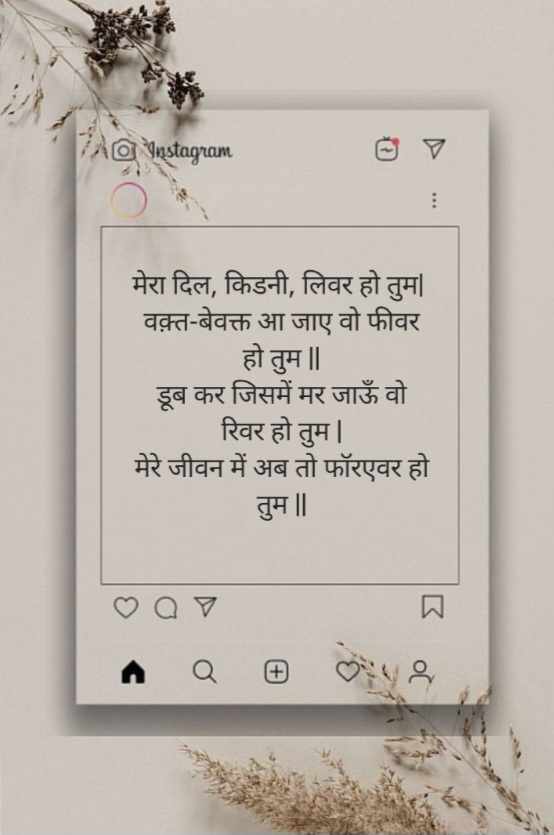 Instagram
मेरा दिल, किडनी, लिवर हो तुम|
वक़्त-बेवक्त आ जाए वो फीवर
हो तुम ||
डूब कर जिसमें मर जाऊँ वो
रिवर हो तुम |
मेरे जीवन में अब तो फॉरएवर हो
तुम ||